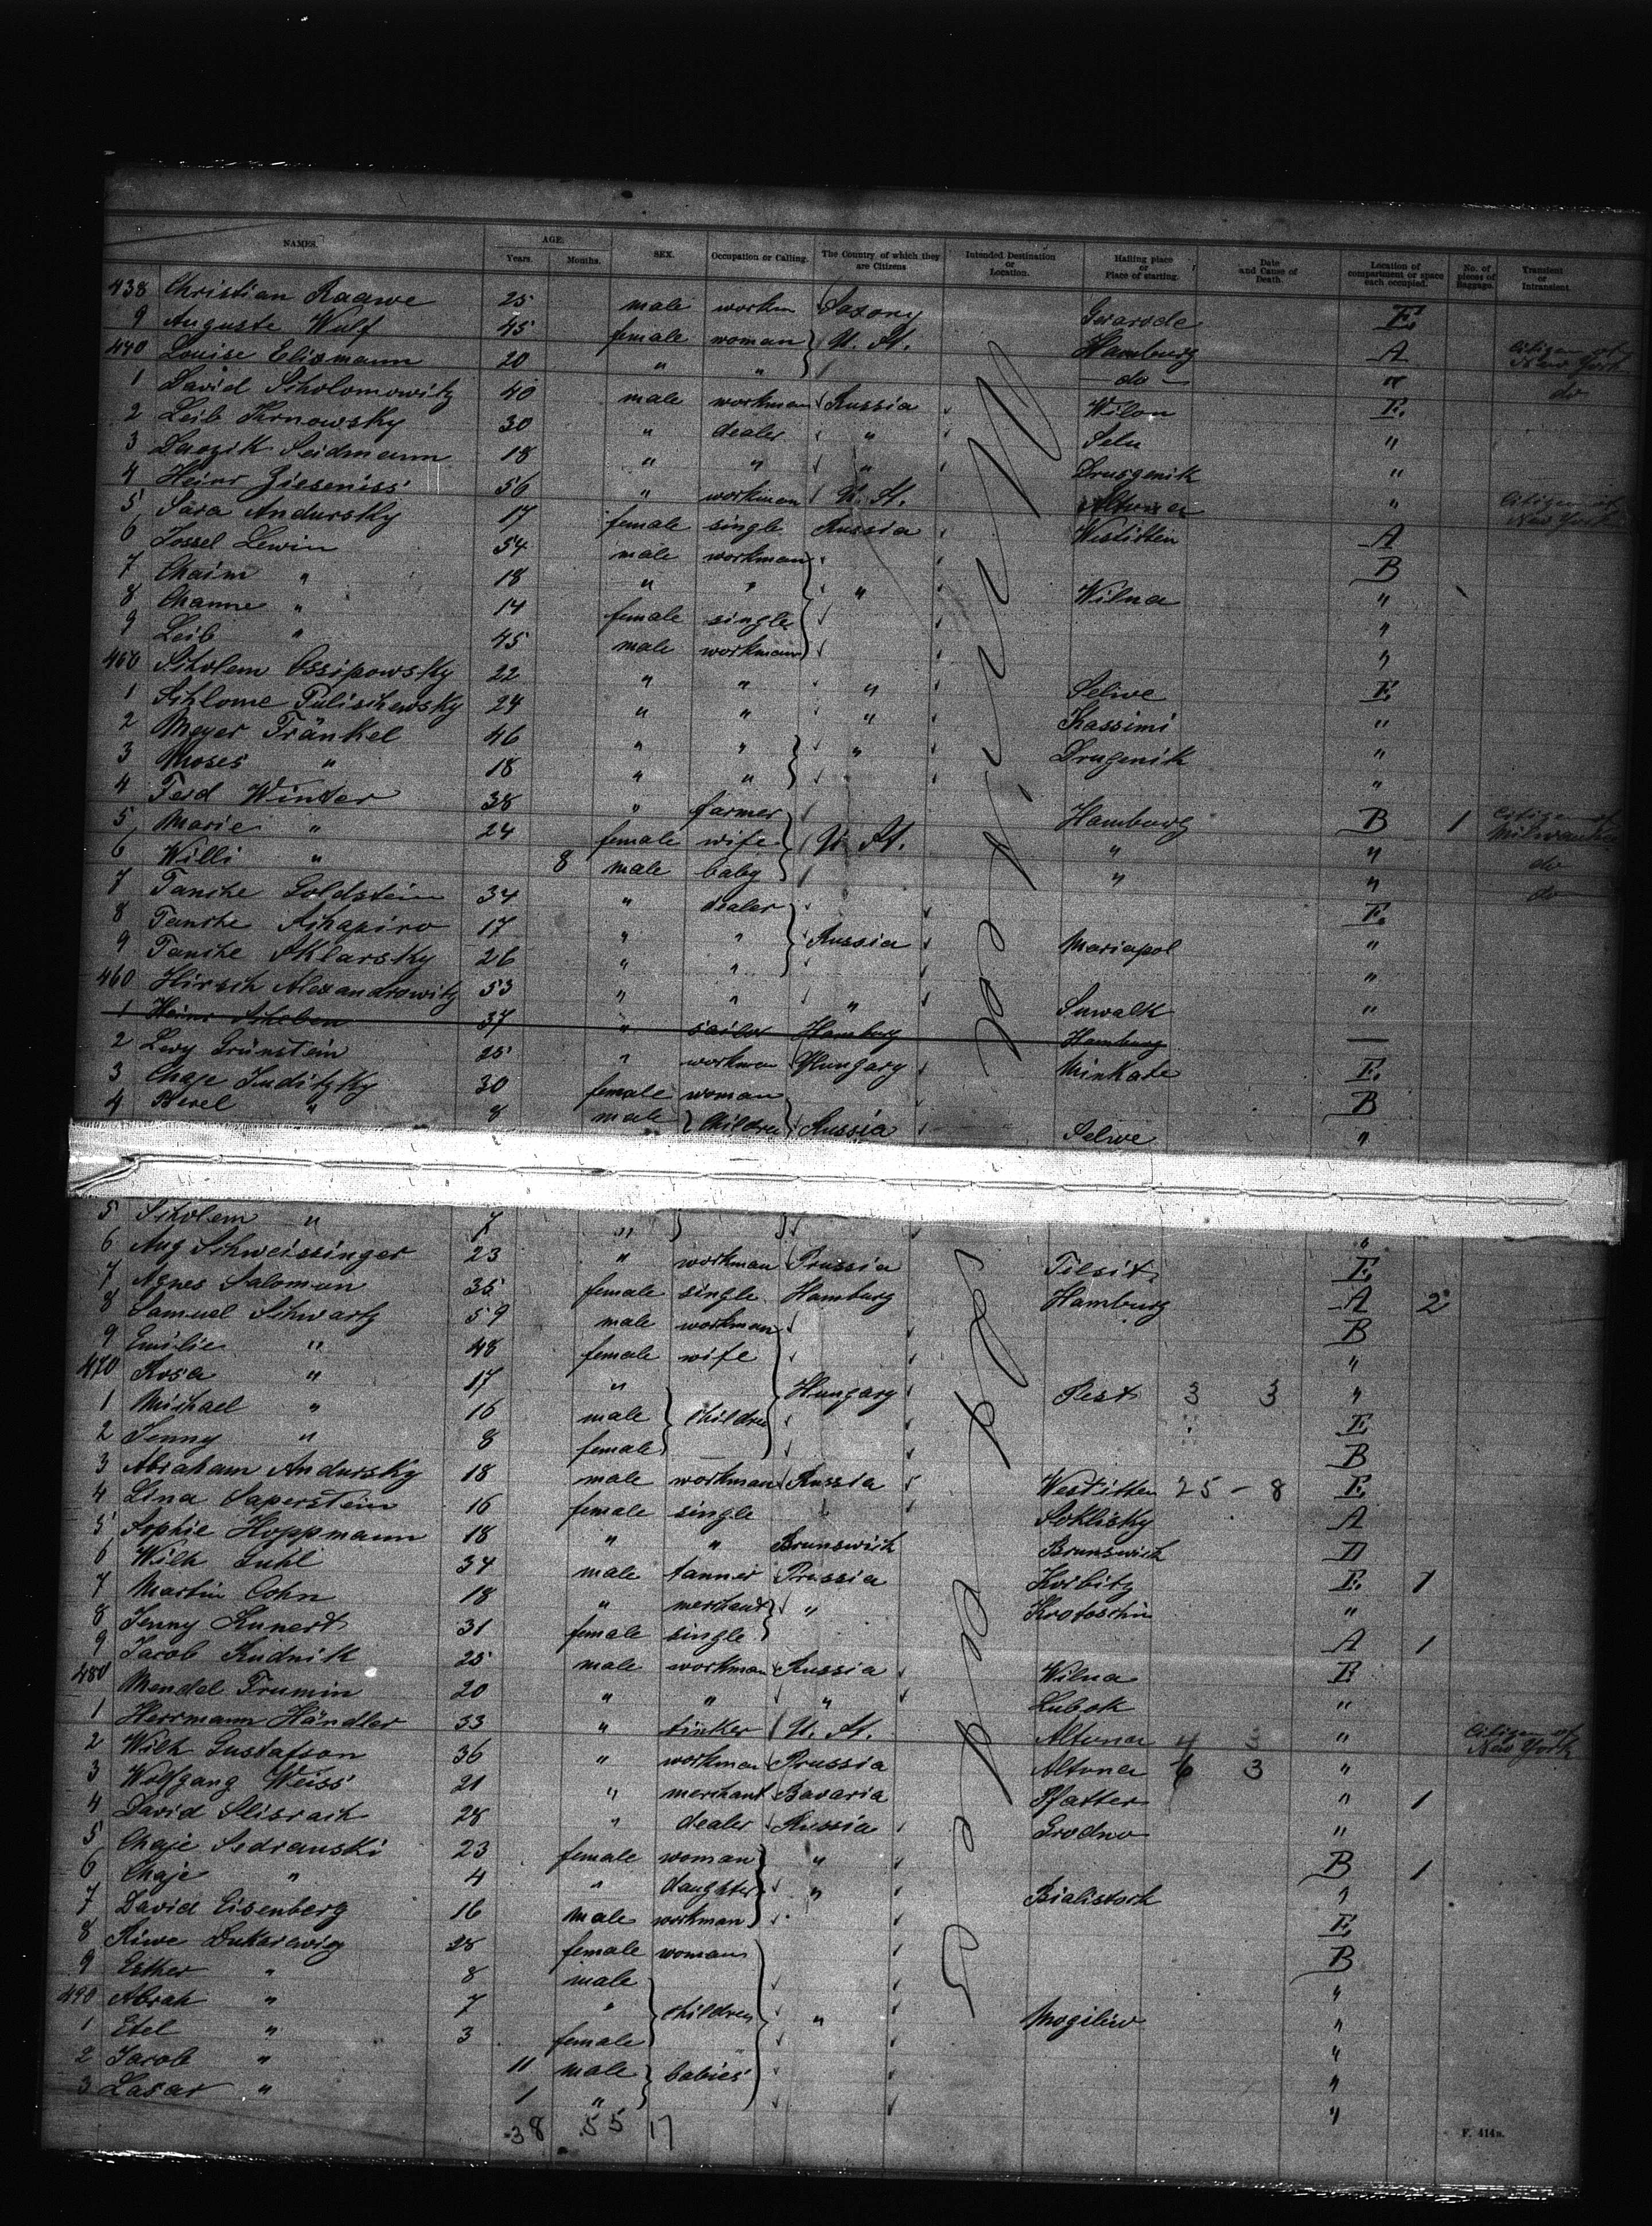 NAMES. AGE. Years. Months. SEX. Occupation or Calling. The Country of which they are Citizens Intended Destination or Location. Hailing place or Place of starting. Date and Cause of Death. Location of compartment or space each occupied. No. of pieces of Baggage. Transient or Intransient.
438 Christian Raawe 25 male workm Saxony E.
9 Auguste Wulf 45 female woman U. St. Hamburg A Citizen of New York
440 Louise Elismann 20 " " do " do
1 David Scholomowitz 40 male workman Russia Wilon E.
2 Leib 30 " dealer " "
3 Seidmann 18 " " " Drusgenik "
4 Heinr Gieseniss 56 " workman U. St. Altona " Citizen of New York
5 Sara Andursky 17 female single Russia Wistitten A
6 Jossel Lewin 54 male workman B
7 Chaim " 18 " " " Wilna "
8 Channe " 14 female single "
9 Leib " 45 male workman "
450 Scholem Ossipowsky 22 " " " Selwe E.
1 Schlome Pulischewsky 24 " " " Kassimi "
2 Meyer Fränkel 46 " " " Drugenik "
3 Moses " 18 " " "
4 Ferd Winter 38 " farmer Hamburg B 1 Citizen of Milwaukee
5 Marie " 24 female wife U. St. " " do
6 Willi " 8 male baby " " do
7 Tanche Goldstein 34 " dealer E.
8 Tanche Schapiro 17 " " Russia Mariapol "
9 Tanche Sklarsky 26 " " "
460 Hirsch Alexandrowitz 53 " " " Suwalk "
1 Heinr 37 " sailor Hamburg Hamburg —
2 Levy Grünstein 25 " workman Hungary Minkate E.
3 Chaje Juditzky 30 female woman B
4 Berel " 8 male Children Russia Selwe "
5 Scholem " 7 " "
6 Aug Schweissinger 23 " workman Prussia Tilsit E.
7 Agnes Salomon 35 female single Hamburg Hamburg A 2
8 Samuel Schwartz 59 male workman B
9 Emilie " 48 female wife "
470 Rosa " 17 " Hungary Pest 3 3 "
1 Michael " 16 male children E
2 Jenny " 8 female B
3 Abraham Andursky 18 male workman Russia Wistitten 25 - 8 E.
4 Lina Saperstein 16 female single " Soklisky A
5 Sophie Hoppmann 18 " " Brunswick Brunswick D
6 Wilh Guhl 34 male tanner Prussia Korbitz E. 1
7 Martin Cohn 18 " merchant " Krotoschin "
8 Jenny Kunert 31 female single A 1
9 Jacob Rudnik 25 male workman Russia Wilna E
480 Mendel Frumin 20 " " " Lubok "
1 Herrmann Händler 33 " tinker U. St. Altona 4 3 " Citizen of New York
2 Wilh Gustafson 36 " workman Prussia Altona 6 3 "
3 Wolfgang Weiss 21 " merchant Bavaria Pfatter " 1
4 David Slisrach 28 " dealer Russia Grodno "
5 Chaje Sedranski 23 female woman " B 1
6 Chaje " 4 " daughter " Bialistock "
7 David Eisenberg 16 male workman E.
8 Riwe 28 female woman B
9 Esther " 8 male "
490 Abrah " 7 " children " Mogilew "
1 Etel " 3 female "
2 Jacob " 11 male babies "
3 Lasar " 1 " "
38 55 17
F. 414a.